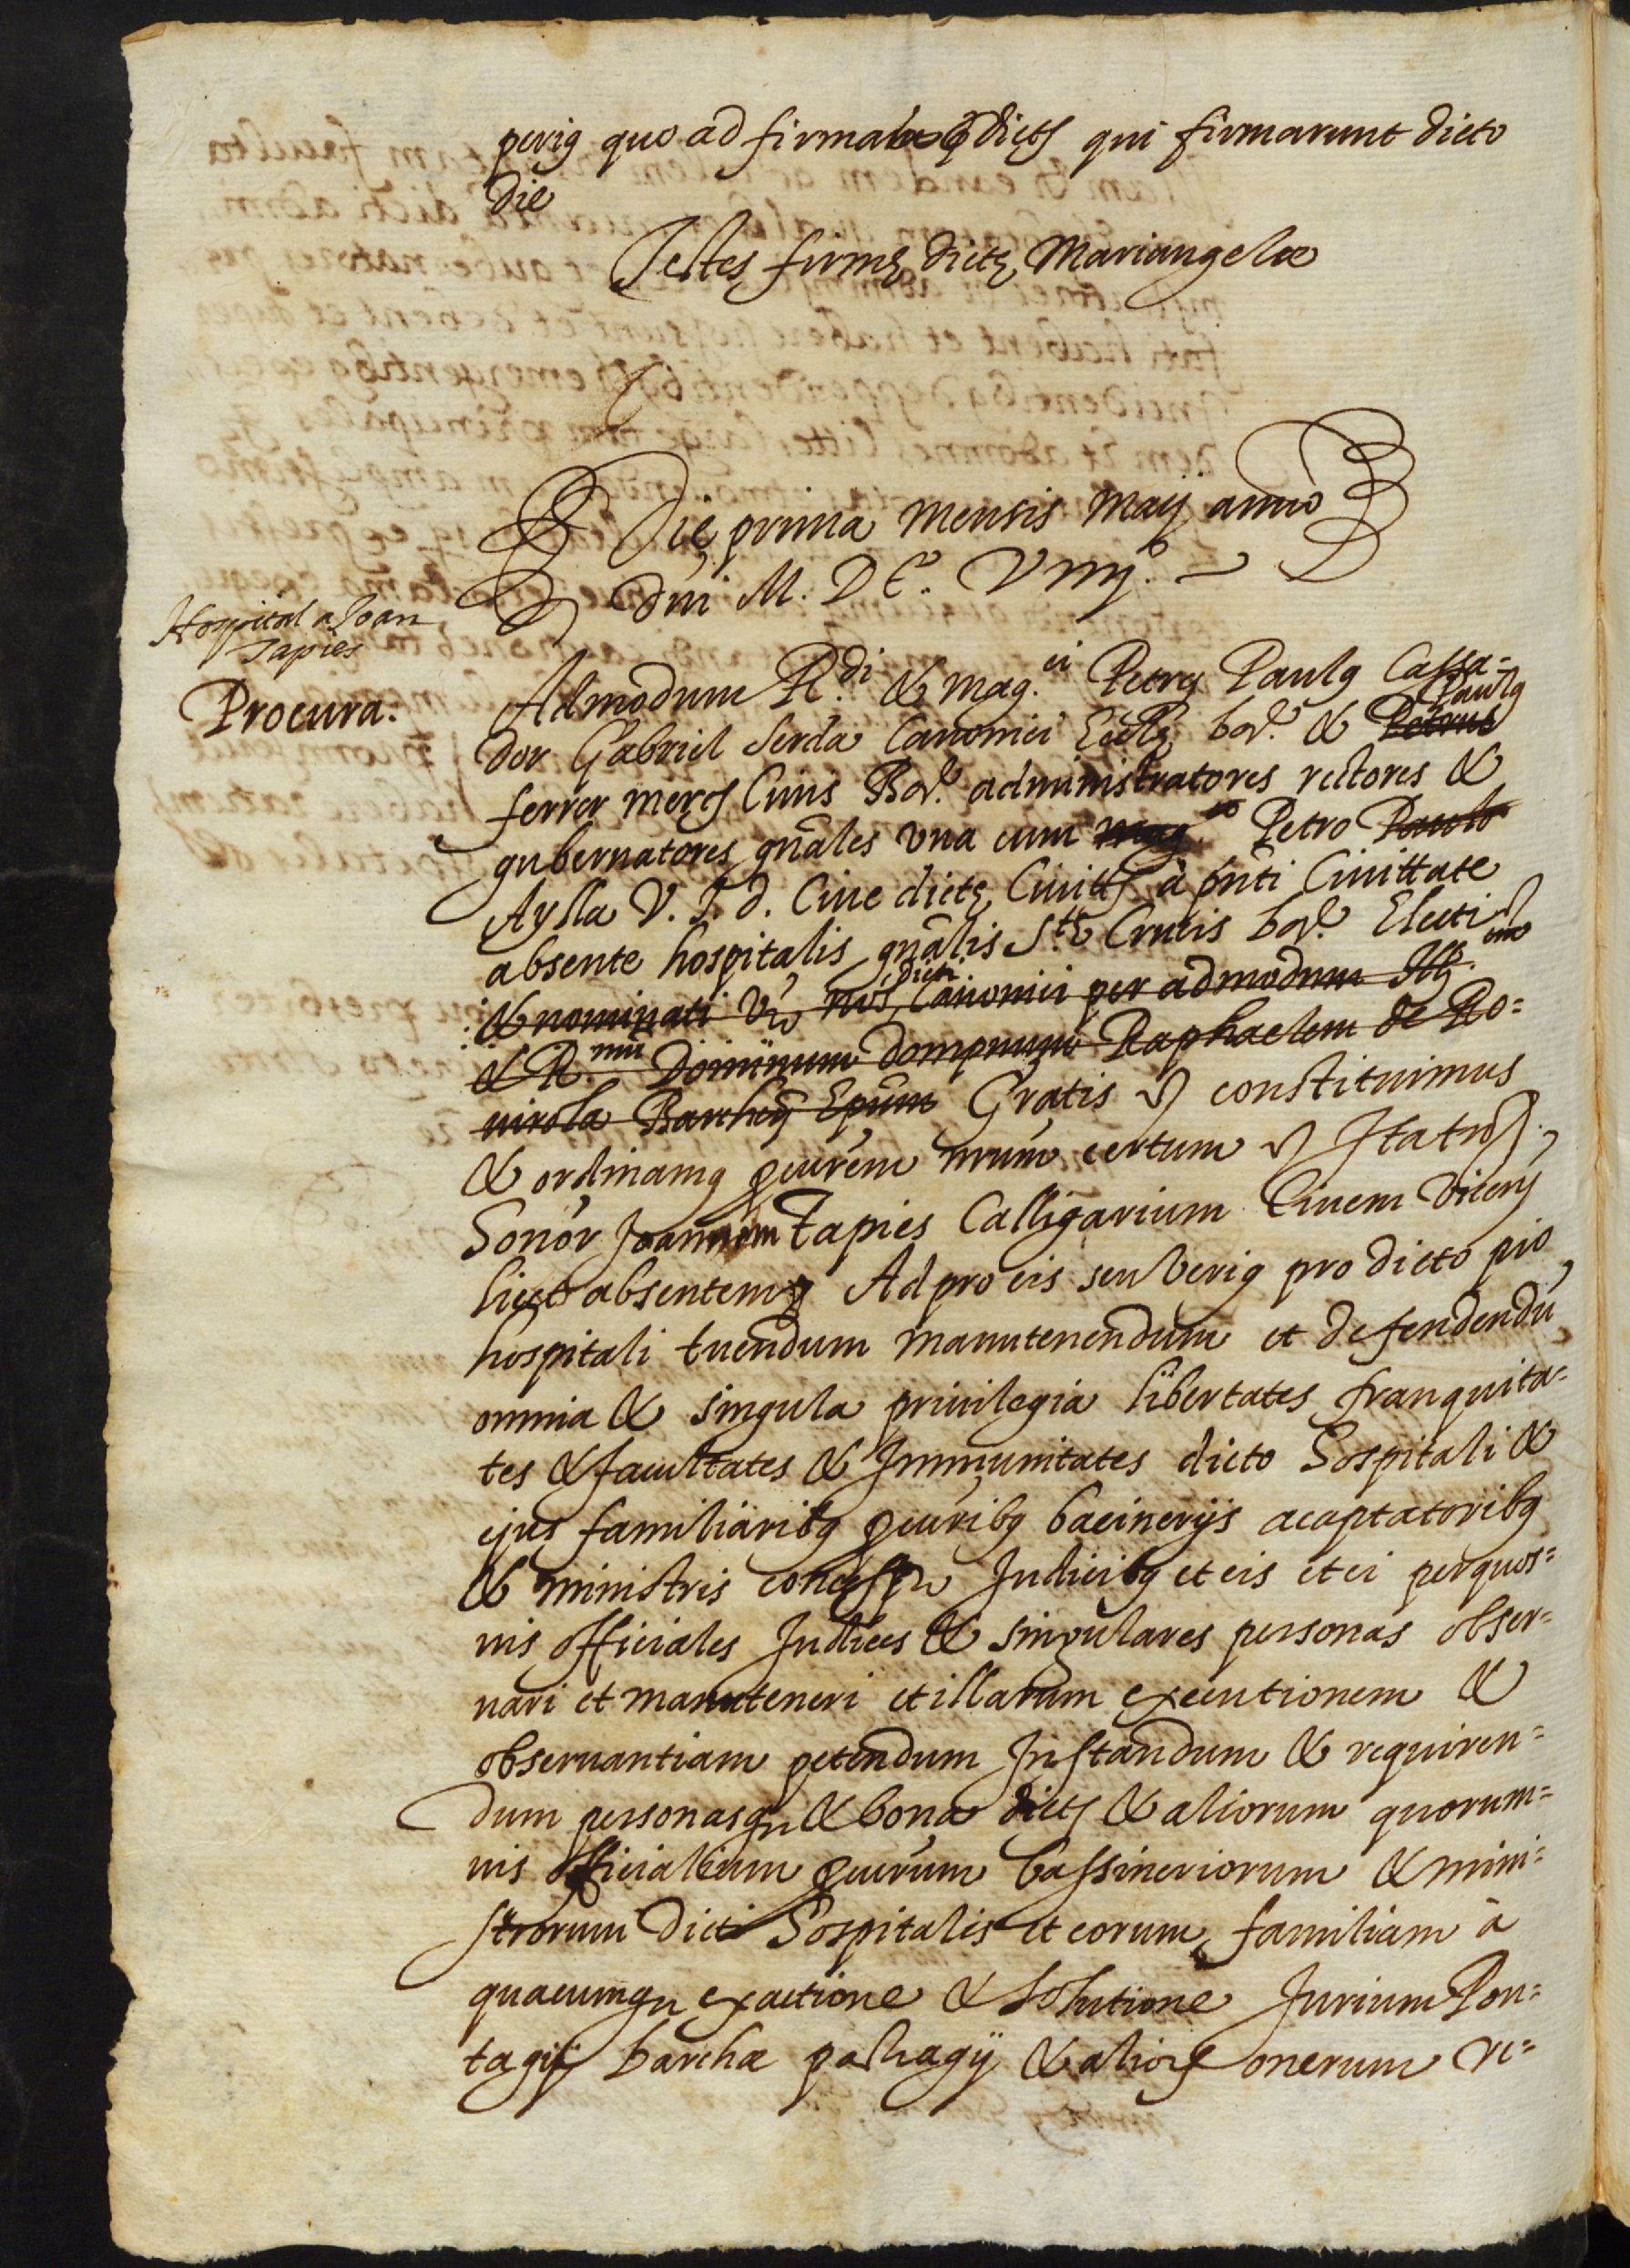 perig quo ad firmale pdicts qui firmarunt dicto
die
Testes firmę dictę Mariangelæ
Die prima mensis Maij anno
dni M. D C. Viiij.
Hospital a Joan
Tapies
Procura.
Admodum R.di & mag.ci Petrus Paulg Cassa=
dor Gabriel Serda Canonici Eccłę bar. & Petrus Paulg
ferrer mercs Ciuis Bar. administratores rectores &
gubernatores gnãles vna cum mag.co Petro Paulo
Aylla V. J. d. Ciue dictę Ciuitts à pñti Ciuittate
absente hospitalis gnãlis S.tę Crucis bar. Electi
& nominati vz nos dicti Canonici per admodum Ill.em
& R.mũ Dominum dompnum Raphaelem de Ro=
uirola Barchẽ Epũm Gratis & constituimus
& ordinamg pcurẽm nrũm certum & Ita tñ &
Honor Joannem Tapies Calligarium Ciuem Vicens
licet absentem & Ad pro eis seu verig pro dicto pio
hospitali tuendum manutenendum et defendendũ
omnia & singula priuilegia libertates franquita=
tes & facultates & Immunitates dicto Hospitali &
ejus familiaribg pcuribg bacinerijs acaptatoribg
& ministris concessa Indicibg et eis et ei per quos=
uis officiales Judices & singulares personas obser=
uari et manuteneri et illarum executionem &
obseruantiam petendum Instandum & requiren=
dum personasq & bona dicts & aliorum quorum=
uis officialium pcurum bassineriorum & mini=
strorum dicti Hospitalis et eorum familiam à
quacumq exactione & solutione Jurium Pon=
tagij barchæ passagij & alior onerum re=